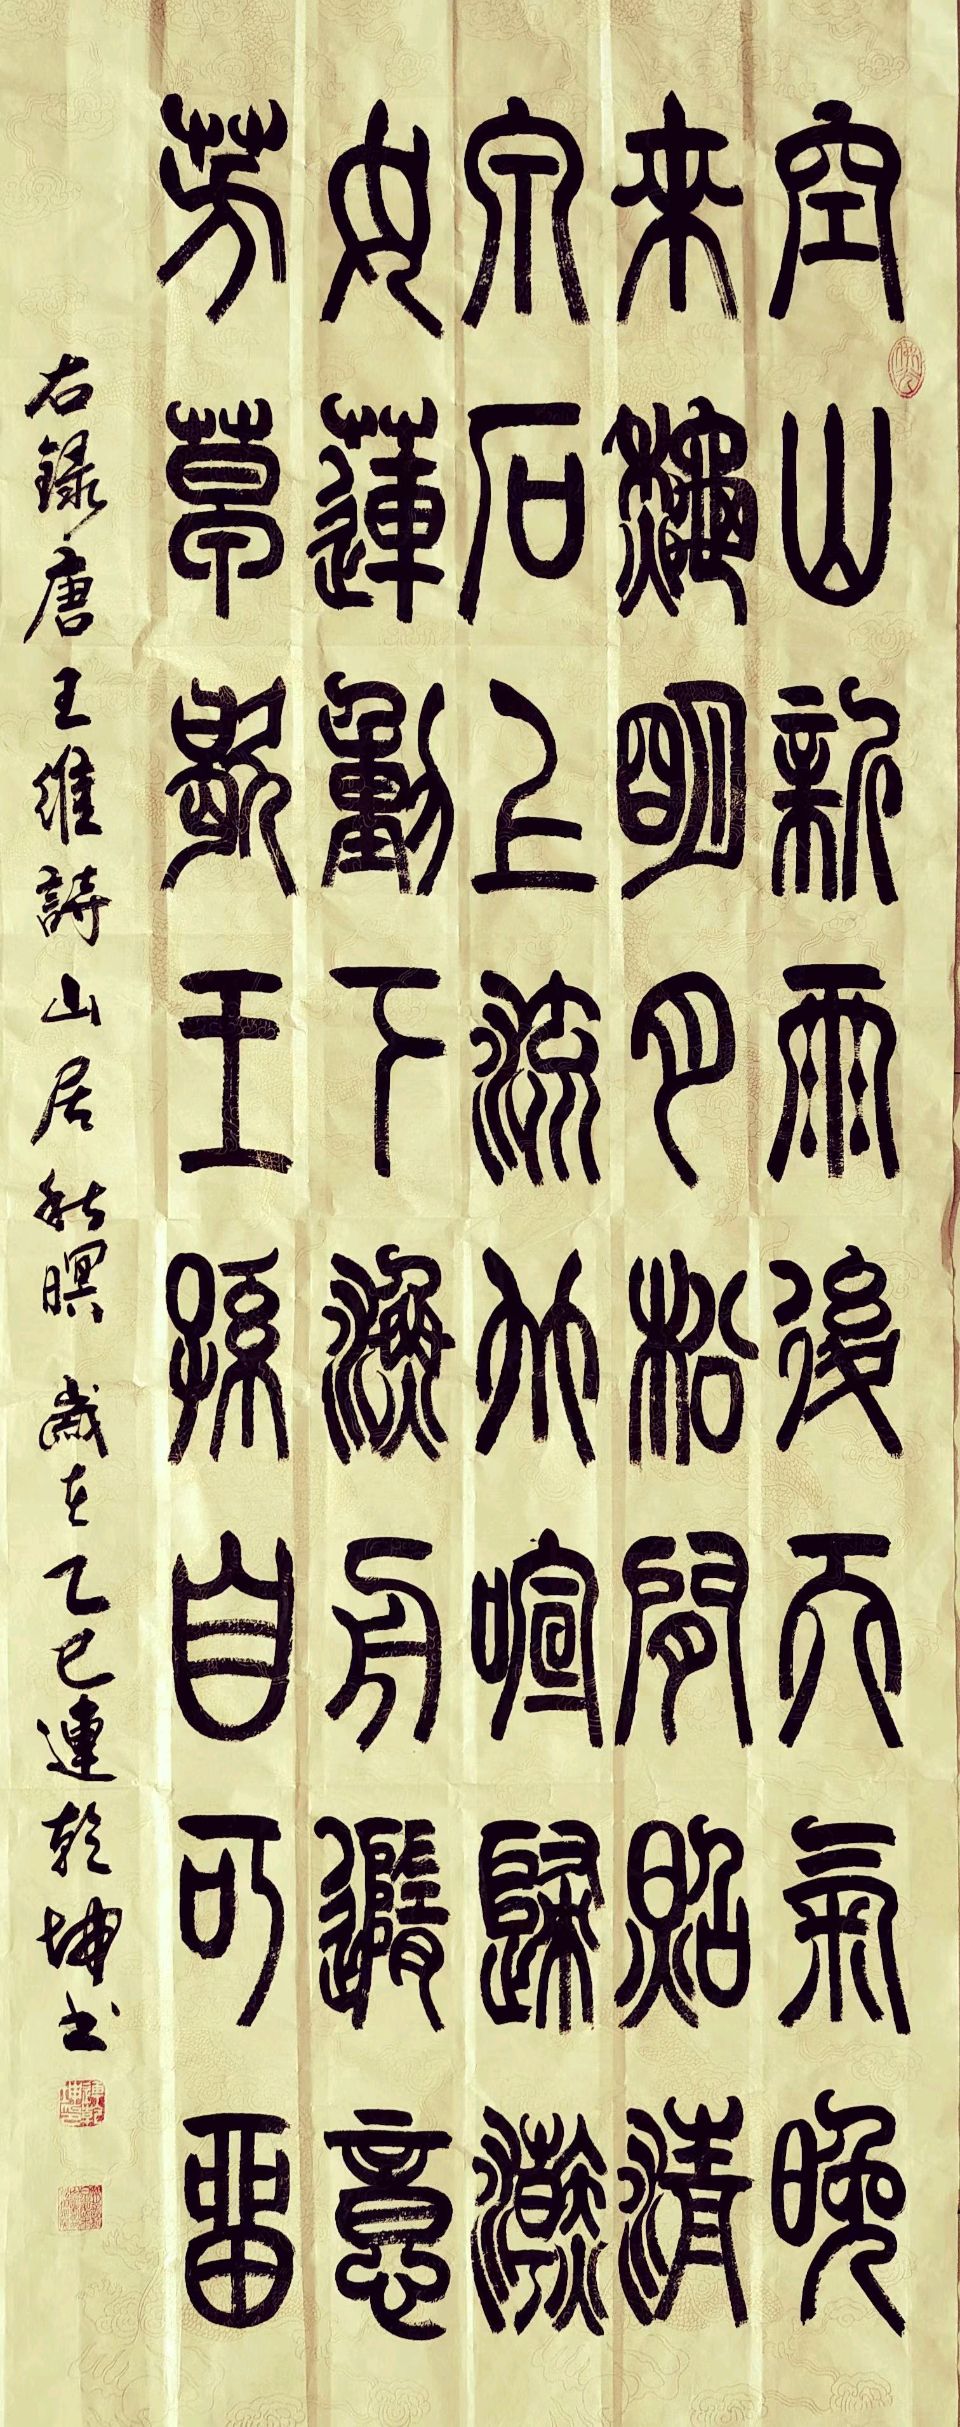 空山新雨後天氣晚
來秋明月松間照清
泉石上流竹喧歸澣
女蓮動下漁舟隨意
芳草歇王孫自可留
右錄唐王維詩山居秋暝 歲在乙巳連乾坤書